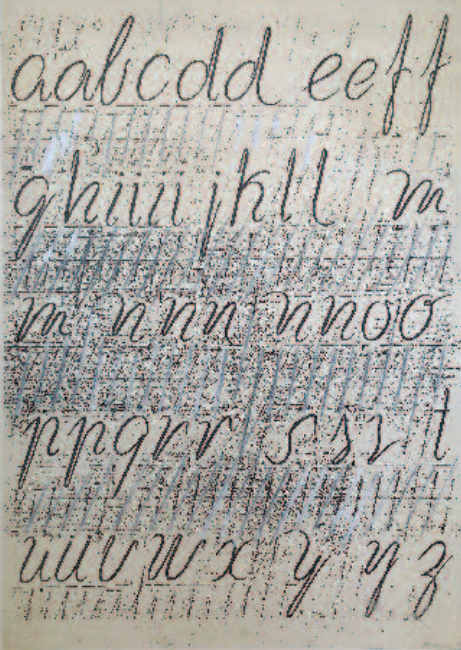 a a b c d d e e f f
g h i i i j k l l m
m n n n n n o o
p p q r r s s r t
u u v w x y y z